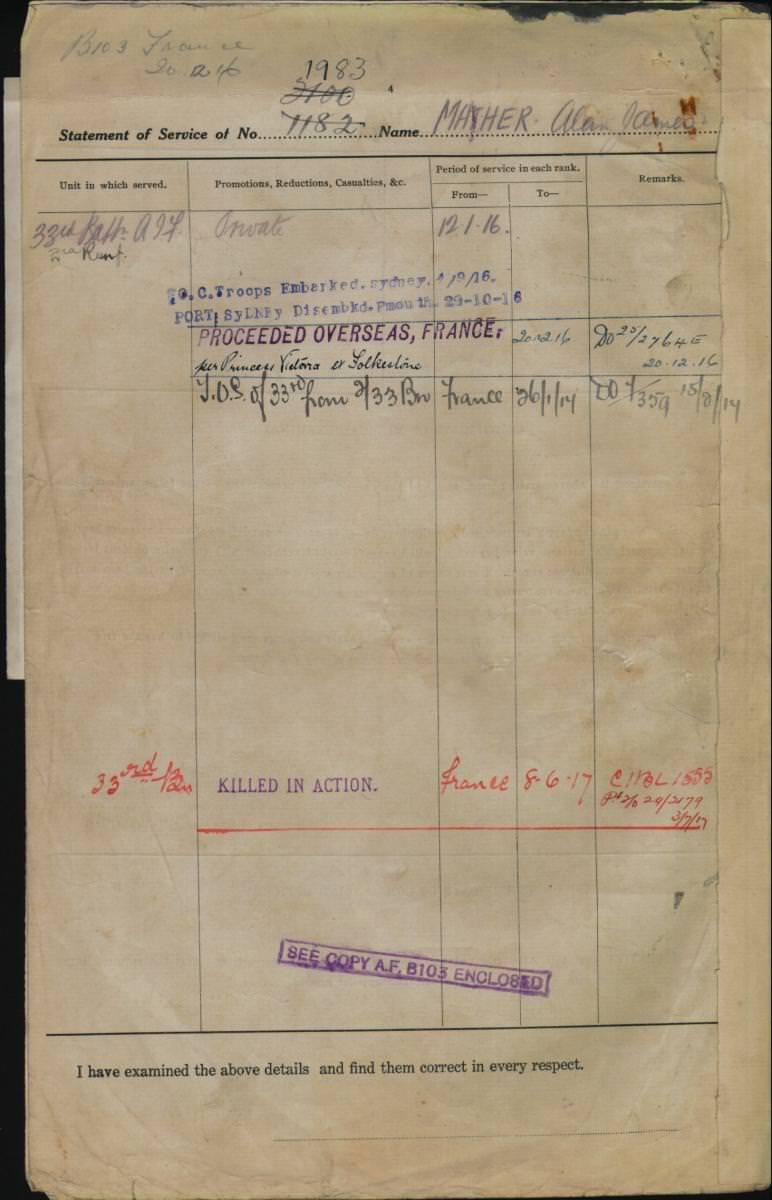 B103 France
20.12.16
1983
2100
4
Statement of Service of No. 1182 Name MATHER. Alan James
Unit in which served.
Promotions, Reductions, Casualties, &c.
Period of service in each rank.
From—
To—
Remarks.
33rd Battn A.I.F. Private 12.1.16.
2nd Reinf.
O.C. Troops Embarked. sydney. 4/9/16.
PORT; SyDNEy Disembkd. Pmouth. 29-10-16
PROCEEDED OVERSEAS, FRANCE. 20.12.16 DO 25/2764E
per Princess Victoria ex Folkestone 20.12.16
T.O.S. of 33rd from 2/33 Bn France 26/1/17 DO 7/359 15/2/17
33rd Bn KILLED IN ACTION. France 8-6-17 1555
3/7/17
SEE COPY A.F. B103 ENCLOSED
I have examined the above details and find them correct in every respect.